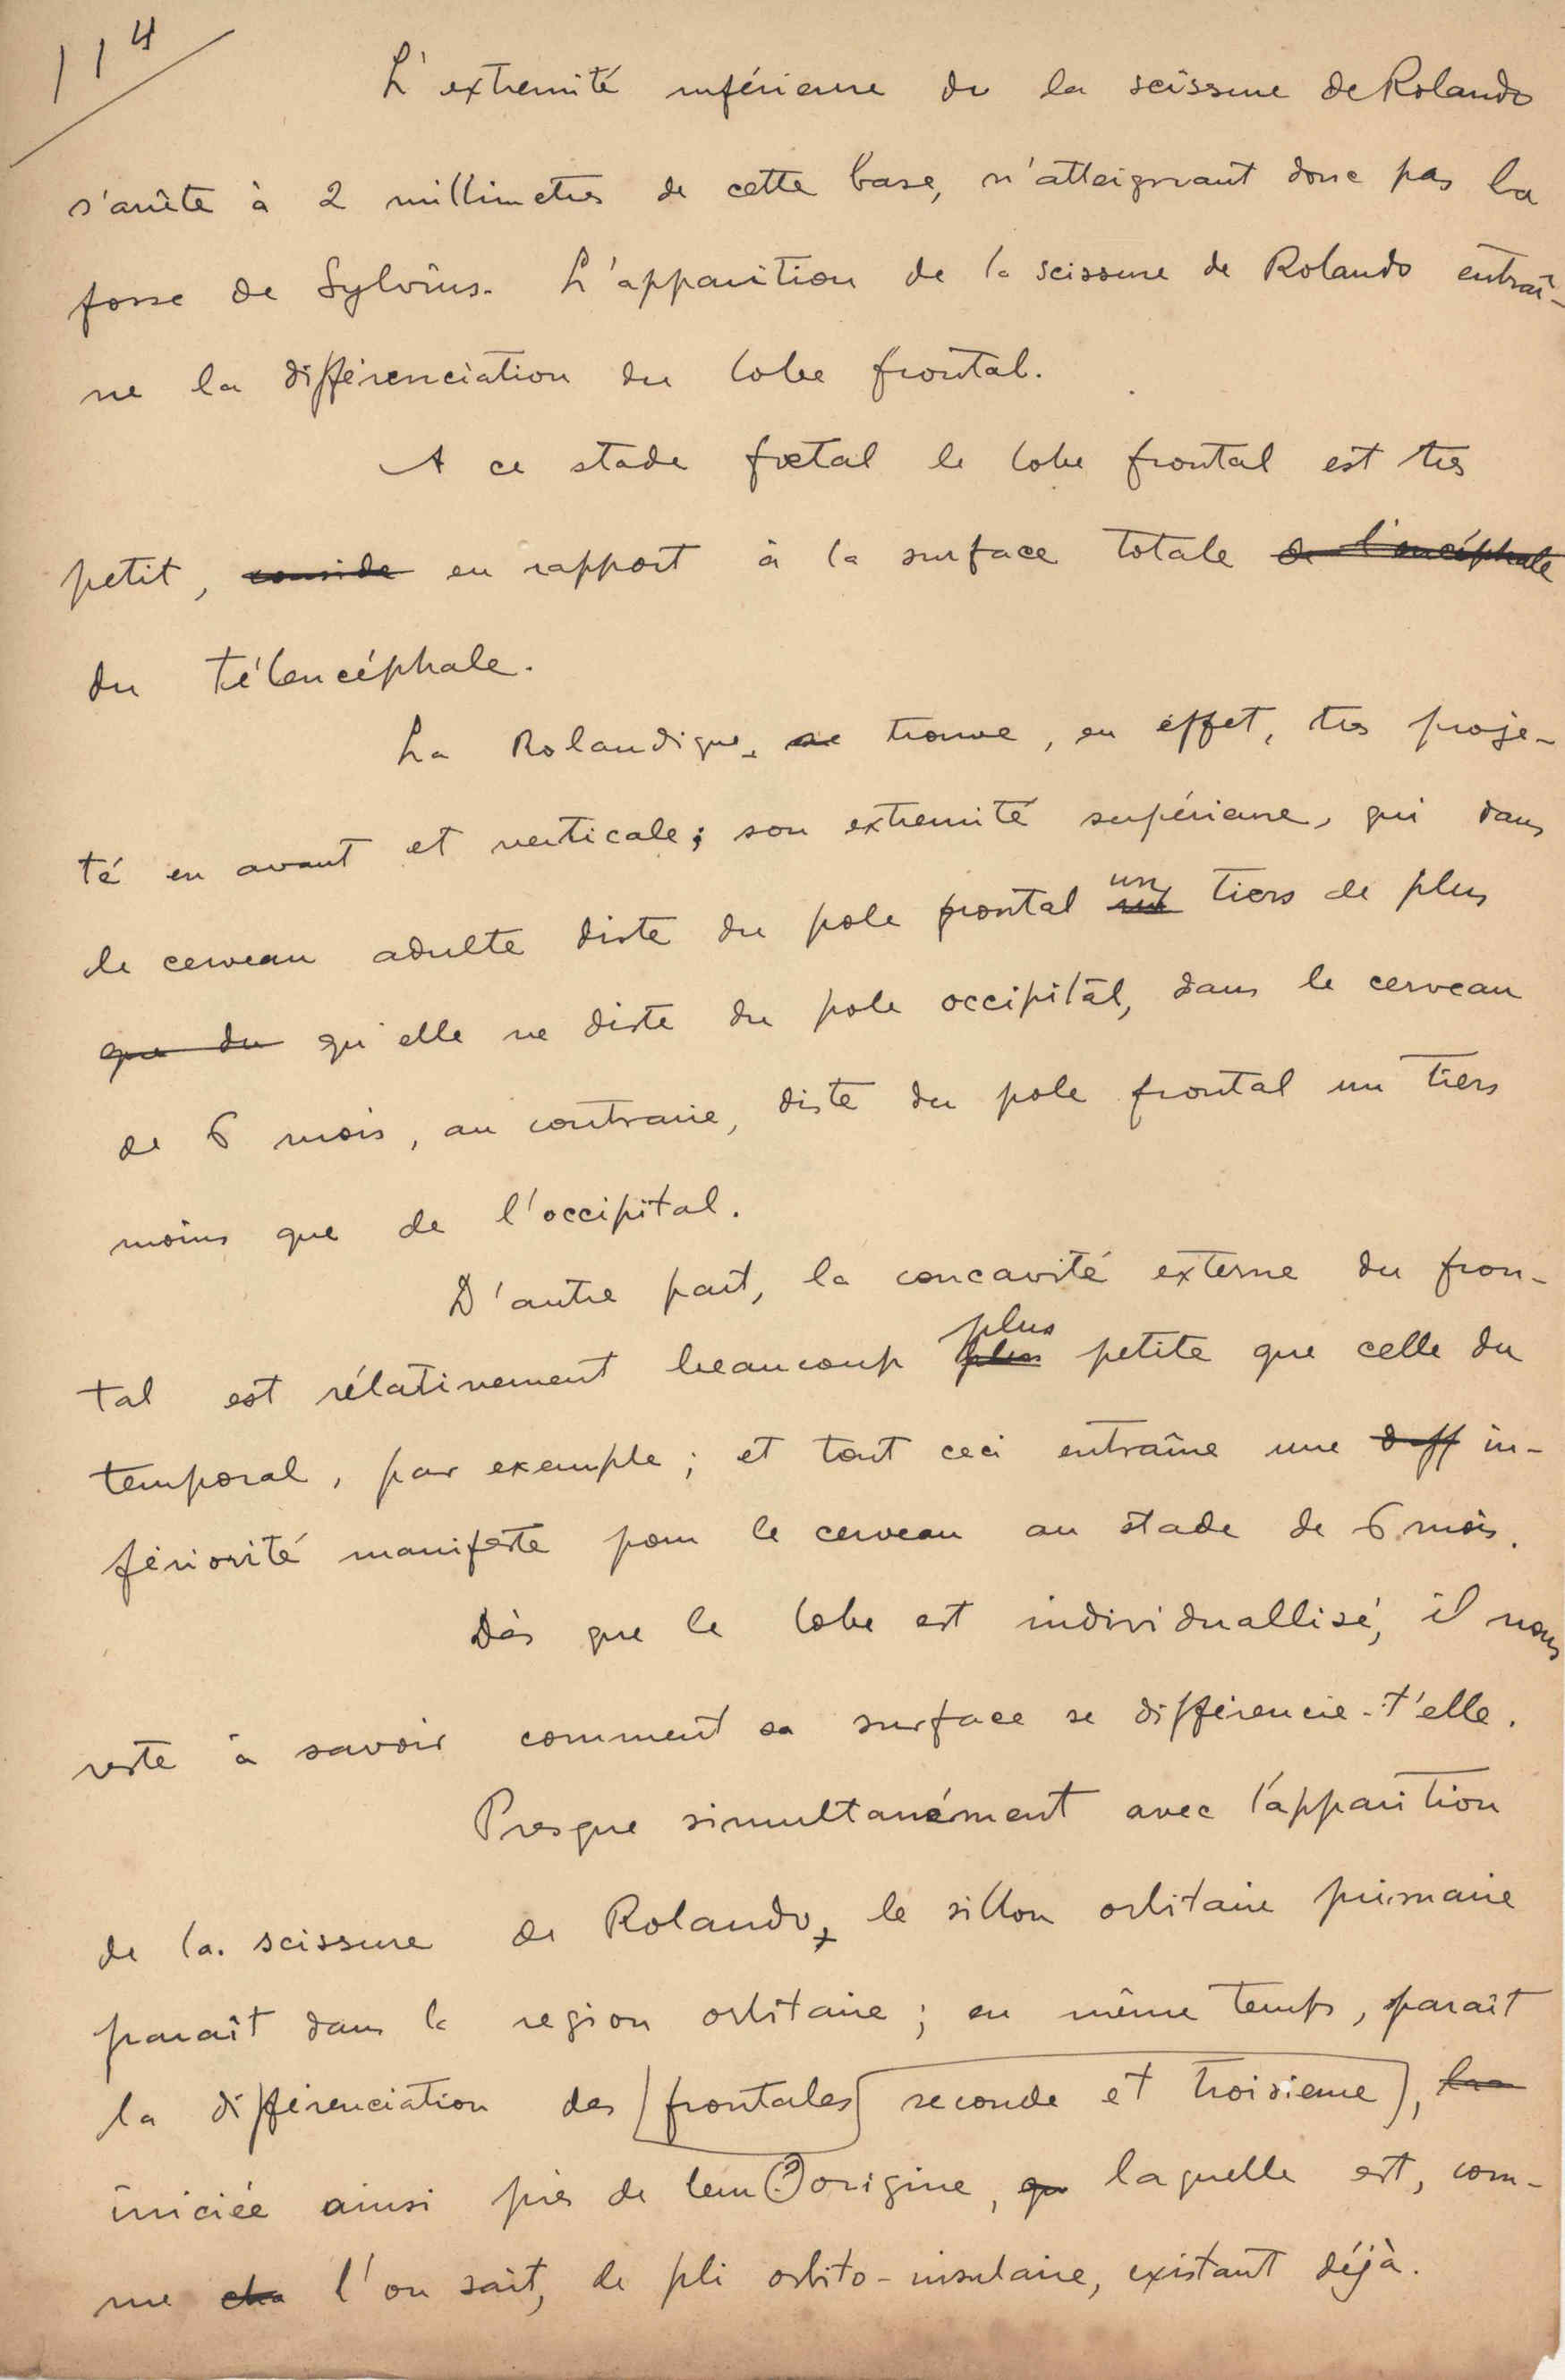 114
L'extremité inférieure de la scissure de Rolando
s'arrête à 2 millimetres de cette base, n'atteignant donc pas la
fosse de Sylvius. L'apparition de la scissure de Rolando entraî-
ne la différenciation du lobe frontal.
A ce stade fœtal le lobe frontal est tres
petit, conside en rapport à la surface totale de l'encéphale
du télencéphale.
La Rolandique, se trouve, en éffet, tres proje-
té en avant et verticale; son extremité supérieure, qui dans
le cerveau adulte diste du pole frontal un tiers de plus
que du qu'elle ne diste du pole occipital, dans le cerveau
de 6 mois, au contraire, diste du pole frontal un tiers
moins que de l'occipital.
D'autre part, la concavité externe du fron-
plus
tal est rélativement beaucoup plus petite que celle du
temporal, par exemple; et tout ceci entraîne une diff in-
fériorité manifeste pour le cerveau au stade de 6 mois.
Dès que le lobe est individuallisé, il nous
reste à savoir comment sa surface se différencie-t'elle.
Presque simultanément avec l'apparition
de la scissure de Rolando, le sillon orbitaire primaire
paraît dans la region orbitaire; en même temps, paraît
la différenciation des frontales seconde et troisieme, las
iniciée ainsi près de leur ? origine, qu laquelle est, com-
me l'on sait, le pli orbito-insulaire, existant déjà.